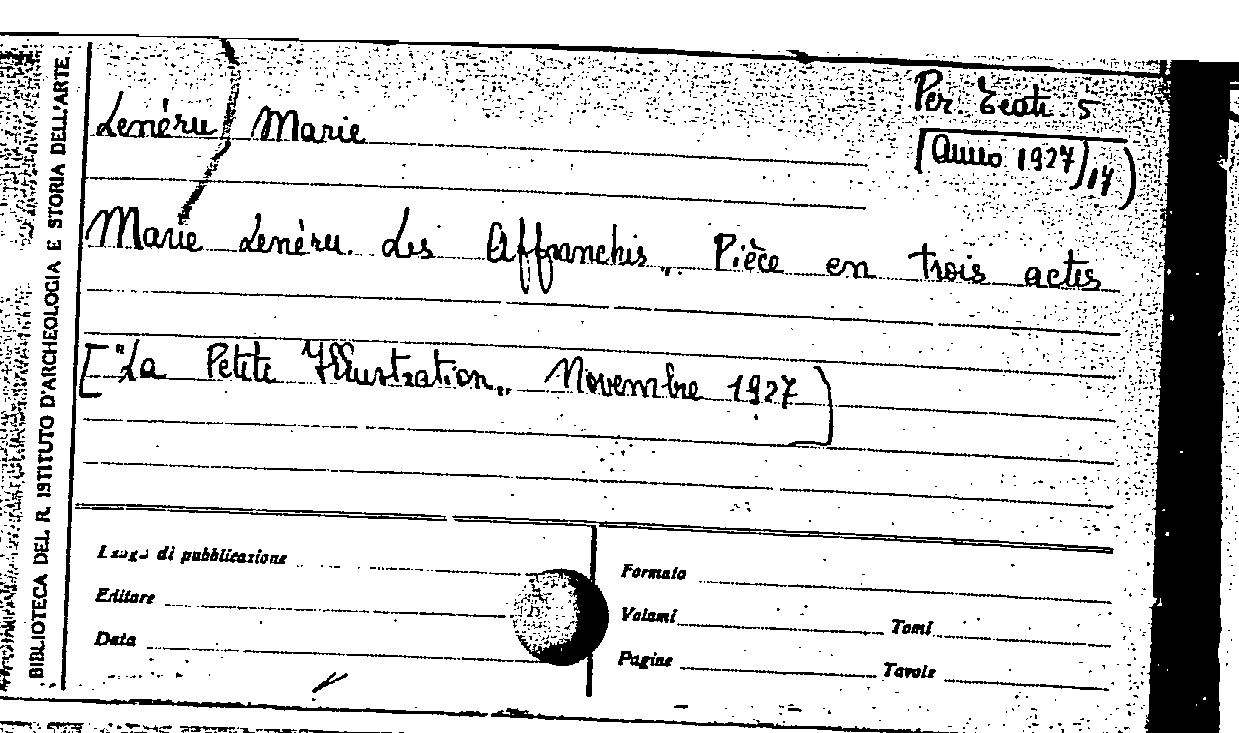 BIBLIOTECA DEL R. ISTITUTO D'ARCHEOLOGIA E STORIA DELL'ARTE
Per. Teatr. 5
[Anno 1927)14)
Lenéru Marie
Marie Lenéru. Les Affranchis„ Pièce en trois actes
["La Petite Illustration„ Novembre 1927]
Luogo di pubblicazione
Editore
Data
Formato
Volumi Tomi
Pagine Tavole